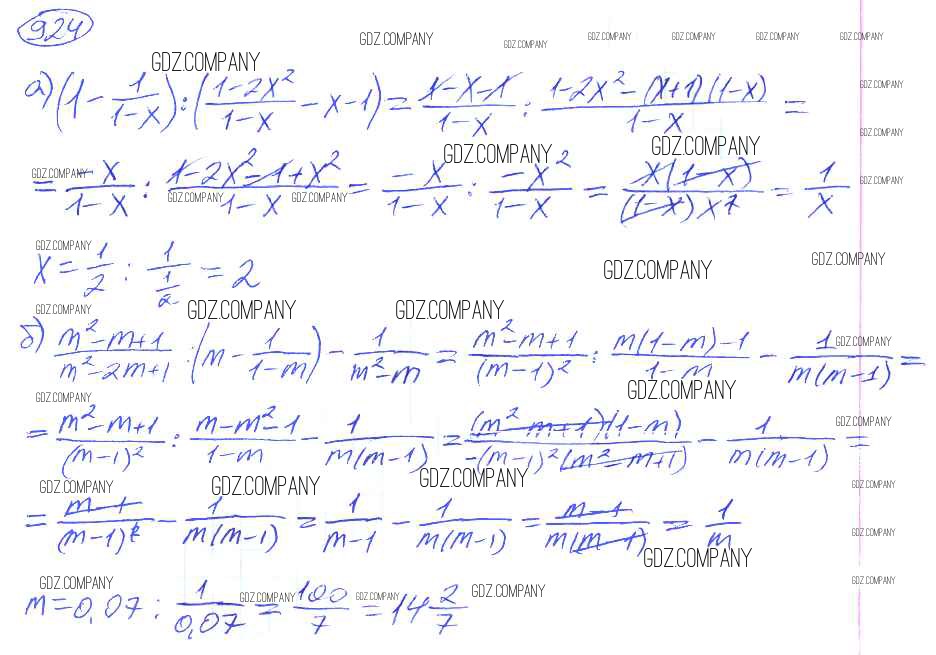 924
GDZ.COMPANY GDZ.COMPANY GDZ.COMPANY GDZ.COMPANY GDZ.COMPANY GDZ.COMPANY
GDZ.COMPANY
а) (1 - 1/(1-x)) : ((1-2x²)/(1-x) - x - 1) = (1-x-1)/(1-x) : (1-2x²-(x+1)(1-x))/(1-x) =
GDZ.COMPANY
GDZ.COMPANY
GDZ.COMPANY GDZ.COMPANY
= -x/(1-x) : (1-2x²-1+x²)/(1-x) = -x/(1-x) : -x²/(1-x) = x(1-x)/((1-x)x²) = 1/x
GDZ.COMPANY GDZ.COMPANY GDZ.COMPANY GDZ.COMPANY
GDZ.COMPANY
x = 1/2 : 1/(1/2) = 2
GDZ.COMPANY GDZ.COMPANY
GDZ.COMPANY GDZ.COMPANY GDZ.COMPANY
б) (m²-m+1)/(m²-2m+1) : (m - 1/(1-m)) - 1/(m²-m) = (m²-m+1)/(m-1)² : (m(1-m)-1)/(1-m) - 1/(m(m-1)) =
GDZ.COMPANY
GDZ.COMPANY GDZ.COMPANY
= (m²-m+1)/(m-1)² : (m-m²-1)/(1-m) - 1/(m(m-1)) = (m²-m+1)(1-m)/(-(m-1)²(m²-m+1)) - 1/(m(m-1)) =
GDZ.COMPANY
GDZ.COMPANY GDZ.COMPANY GDZ.COMPANY GDZ.COMPANY
= (m-1)/(m-1)² - 1/(m(m-1)) = 1/(m-1) - 1/(m(m-1)) = (m-1)/(m(m-1)) = 1/m
GDZ.COMPANY
GDZ.COMPANY
GDZ.COMPANY GDZ.COMPANY GDZ.COMPANY
m = 0,07 : 1/0,07 = 100/7 = 14 2/7
GDZ.COMPANY GDZ.COMPANY